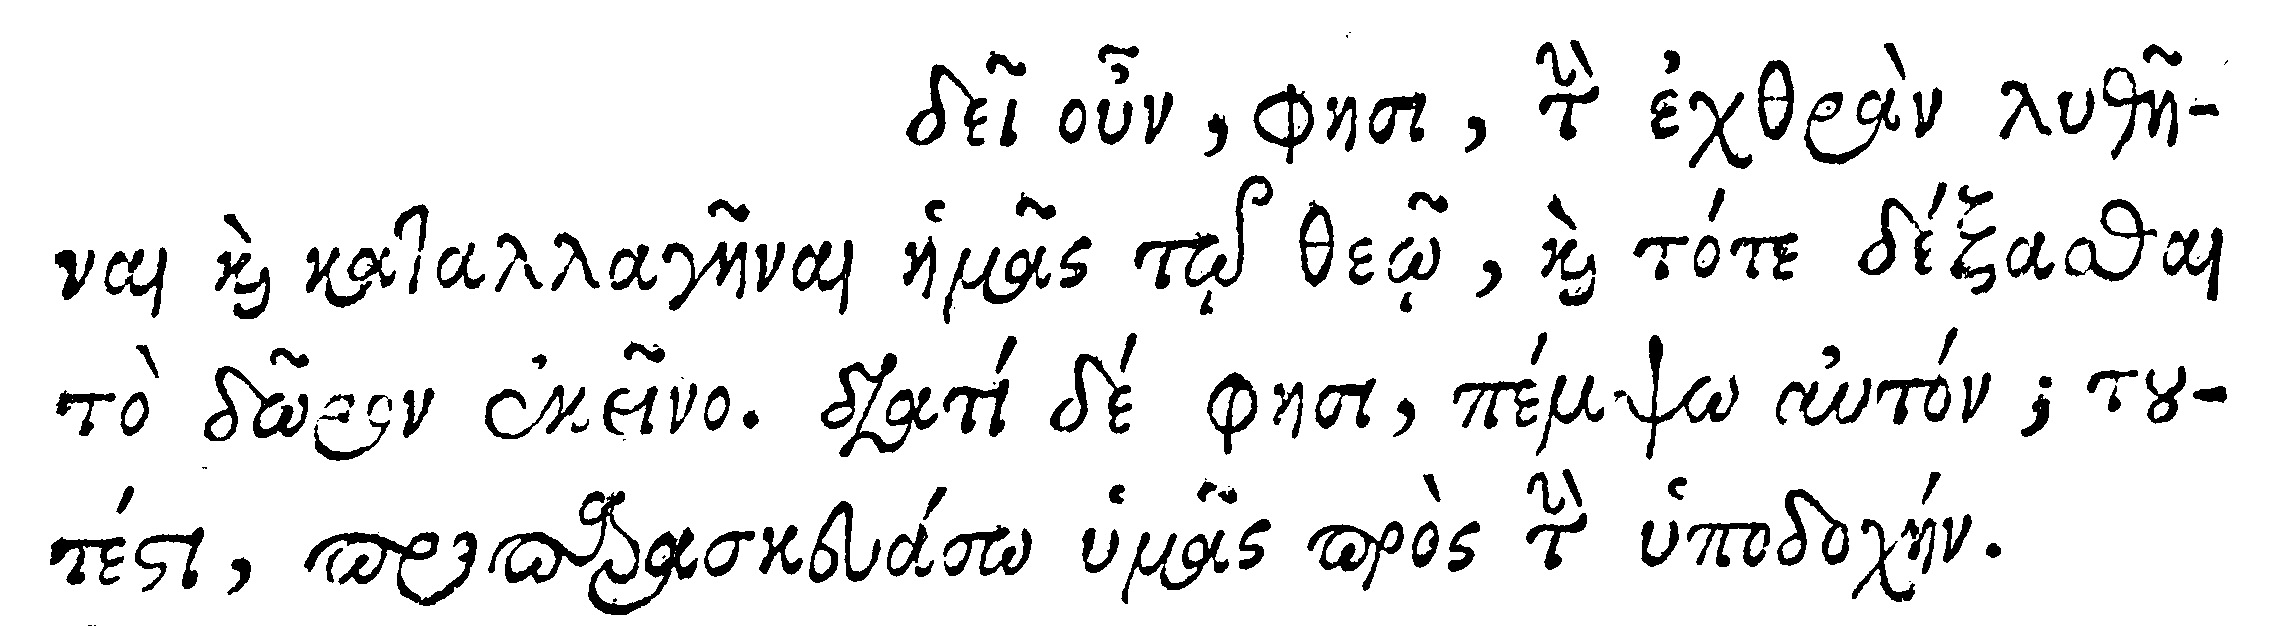 δεῖ οὖν, φησι, τὴν ἐχθρὰν λυθῆ-
ναι καὶ καταλλαγῆναι ἡμᾶς τῷ θεῷ, καὶ τότε δέξασθαι
τὸ δῶρον ἐκεῖνο. διατί δέ φησι, πέμψω αὐτόν; του-
τέστι, προπαρασκευάσω ὑμᾶς πρὸς τὴν ὑποδοχήν.